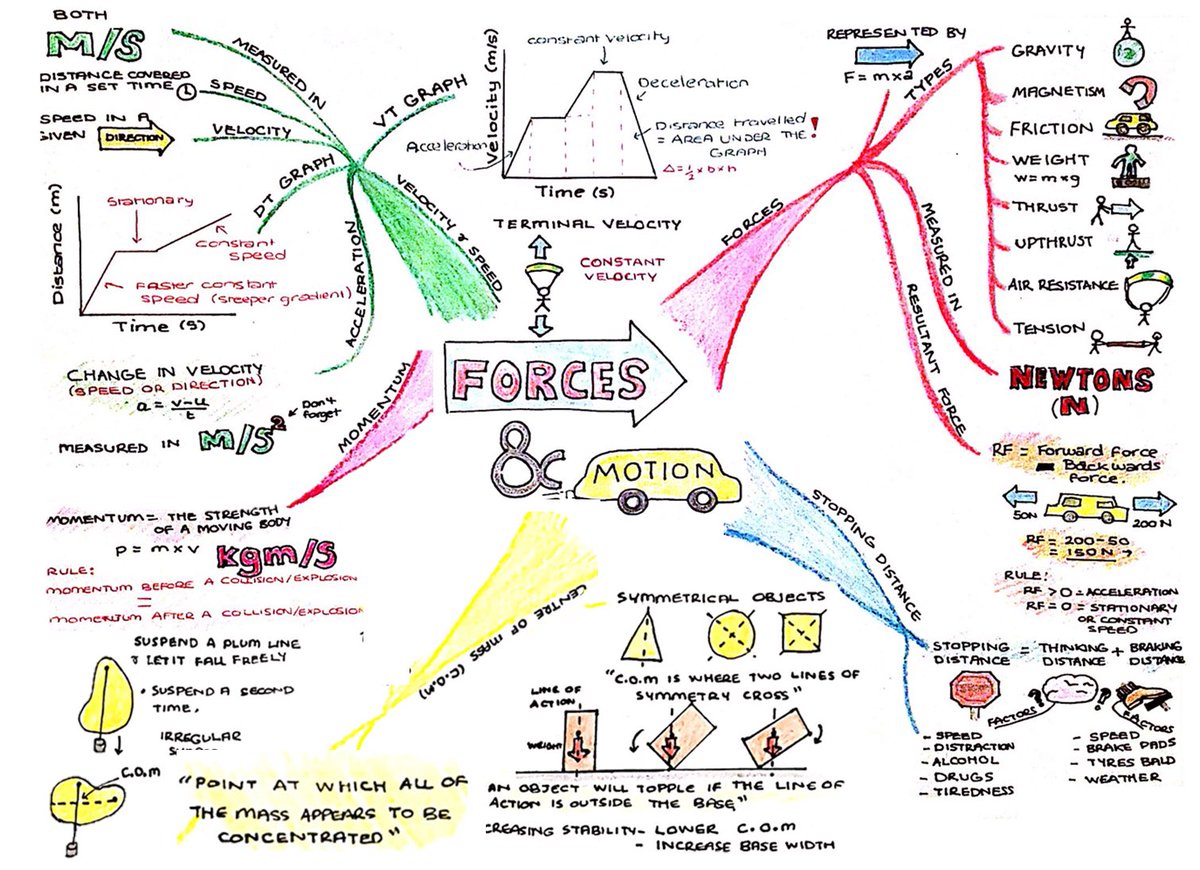 BOTH
M/S
MEASURED IN
DISTANCE COVERED
IN A SET TIME
SPEED
SPEED IN A
GIVEN
DIRECTION
VELOCITY
VT GRAPH
DT GRAPH
VELOCITY & SPEED
ACCELERATION
Velocity (m/s)
Time (s)
constant velocity
Deceleration
Acceleration
Distance travelled
= AREA UNDER THE
GRAPH
!
Δ=½×b×h
Distance (m)
Time (s)
Stationary
constant
speed
Faster constant
speed (steeper gradient)
CHANGE IN VELOCITY
(SPEED OR DIRECTION)
a = v-u
t
MEASURED IN M/S²
Don't
forget
TERMINAL VELOCITY
CONSTANT
VELOCITY
FORCES
&
MOTION
FORCES
REPRESENTED BY
F = m×a
TYPES
GRAVITY
MAGNETISM
FRICTION
WEIGHT
W=m×g
THRUST
UPTHRUST
AIR RESISTANCE
TENSION
MEASURED IN
NEWTONS
(N)
RESULTANT FORCE
RF = Forward force
- Backwards
force.
50N
200N
RF = 200-50
= 150N →
RULE:
RF > 0 = ACCELERATION
RF = 0 = STATIONARY
OR CONSTANT
SPEED
MOMENTUM
MOMENTUM = THE STRENGTH
OF A MOVING BODY
P = m×v kgm/s
RULE:
MOMENTUM BEFORE A COLLISION/EXPLOSION
=
MOMENTUM AFTER A COLLISION/EXPLOSION
CENTRE OF MASS (C.O.M)
SUSPEND A PLUM LINE
& LET IT FALL FREELY
• SUSPEND A SECOND
TIME.
IRREGULAR
C.O.M
"POINT AT WHICH ALL OF
THE MASS APPEARS TO BE
CONCENTRATED"
SYMMETRICAL OBJECTS
"C.O.M IS WHERE TWO LINES OF
SYMMETRY CROSS"
LINE OF
ACTION
WEIGHT
AN OBJECT WILL TOPPLE IF THE LINE OF
ACTION IS OUTSIDE THE BASE"
CREASING STABILITY - LOWER C.O.M
- INCREASE BASE WIDTH
STOPPING DISTANCE
STOPPING = THINKING + BRAKING
DISTANCE DISTANCE DISTANCE
FACTORS
? ?
FACTORS
- SPEED
- DISTRACTION
- ALCOHOL
- DRUGS
- TIREDNESS
- SPEED
- BRAKE PADS
- TYRES BALD
- WEATHER